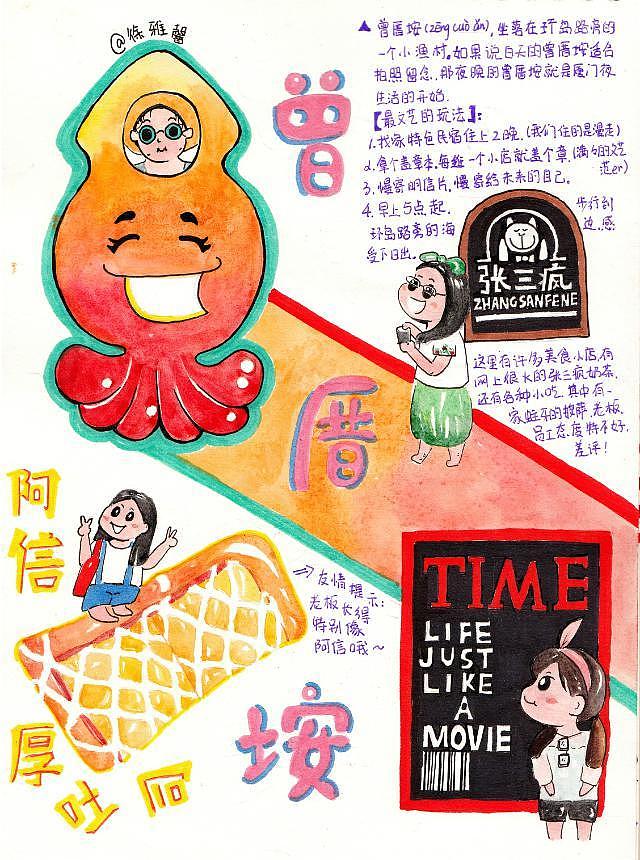 @修雅馨
曾
厝
垵
▲曾厝垵(zēng cuò ǎn),坐落在环岛路旁的
一个小渔村。如果说白天的曾厝垵适合
拍照留念,那夜晚的曾厝垵就是厦门夜
生活的开始.
【最文艺的玩法】:
1.找家特色民宿住上2晚.(我们住的是漫走)
2.拿个盖章本,每逛一个小店就盖个章.(满勾的文艺
范er)
3.慢寄明信片,慢寄给未来的自己。
4.早上5点起.步行到
环岛路旁的海边.感
受下日出.
张三疯
ZHANGSANFENE
这里有许多美食小店,有
网上很火的张三疯奶茶.
还有各种小吃.其中有一
家蚵仔的披萨.老板.
员工态度特不好.
差评!
阿信
厚吐司
友情提示:
老板长得
特别像
阿信哦~
TIME
LIFE
JUST
LIKE
A
MOVIE